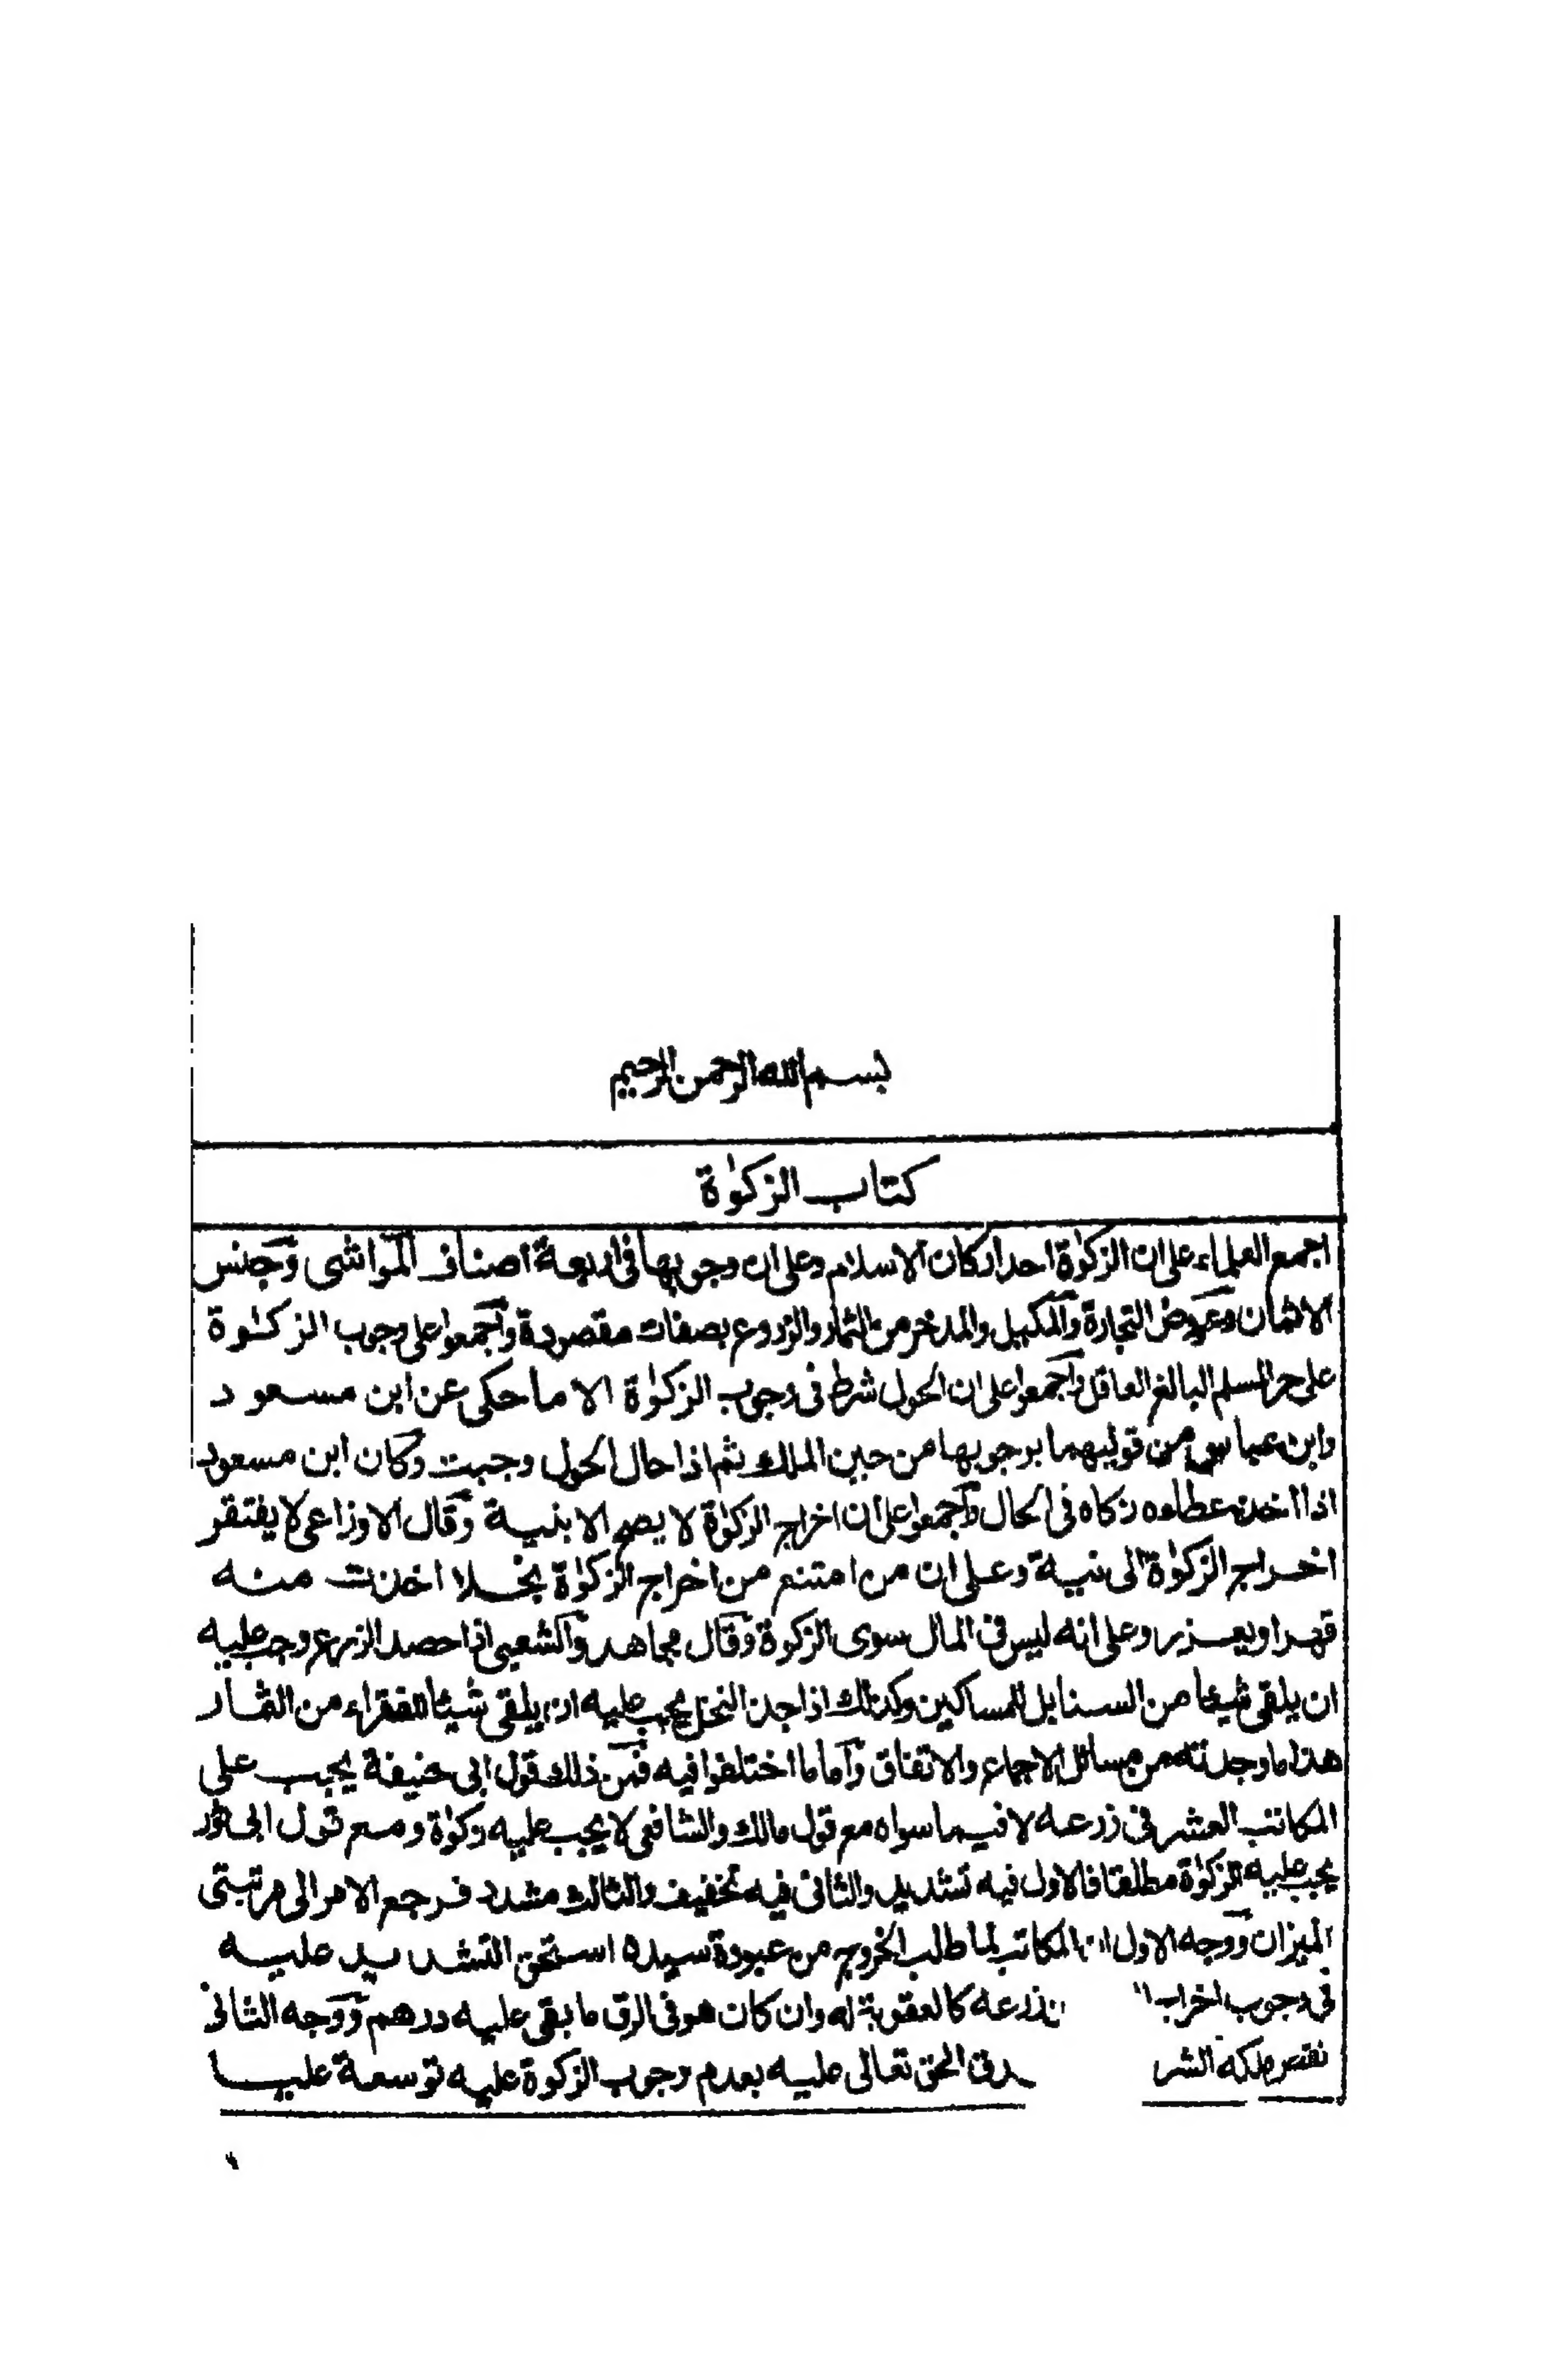 بسم الله الرحمن الرحيم
كتاب الزكوٰة
اجمع العلماء على ان الزكوٰة احد اركان الاسلام وعلى ان وجوبها فى اربعة اصناف المواشى وجنس
الاثمان وعروض التجارة والمكيل والمدخر من الثمار والزروع بصفات مقصودة واجمعوا على وجوب الزكوٰة
على حر المسلم البالغ العاقل واجمعوا على ان الحول شرط فى وجوب الزكوٰة الا ما حكى عن ابن مسعود
وابن عباس من قوليهما بوجوبها من حين الملك ثم اذا حال الحول وجبت وكان ابن مسعود
اذا اخذ عطاءه زكاه فى الحال واجمعوا على ان اخراج الزكوٰة لا يصح الا بنية وقال الاوزاعى لا يفتقر
اخراج الزكوٰة الى نية وعلى ان من امتنع من اخراج الزكوٰة بخلا اخذت منه
قهرا ويعزر وعلى انه ليس فى المال سوى الزكوة وقال مجاهد والشعبى اذا حصد الزرع وجب عليه
ان يلقى شيئا من السنابل للمساكين وكذلك اذا جذ النخل يجب عليه ان يلقى شيئا للفقراء من الثمار
هذا ما وجدته من مسائل الاجماع والاتفاق واما ما اختلفوا فيه فمن ذلك قول ابى حنيفة يجب على
المكاتب العشر فى زرعه لا فيما سواه مع قول مالك والشافعى لا يجب عليه زكوٰة ومع قول ابى ثور
يجب عليه الزكوٰة مطلقا فالاول فيه تشديد والثانى فيه تخفيف والثالث مشدد فرجع الامر الى مرتبتى
الميزان ووجه الاول ان المكاتب لما طلب الخروج من عبودة سيده استحق التشديد عليه
فى وجوب اخراج زرعه كالعقوبة له وان كان هو فى الرق ما بقى عليه درهم ووجه الثانى
نقص ملكه الحق تعالى عليه بعدم وجوب الزكوة عليه توسعة عليه